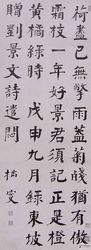 荷盡已無擎雨蓋菊殘猶有傲
霜枝一年好景君須記正是橙
黃橘綠時 戊申九月錄東坡
贈劉景文詩遣悶